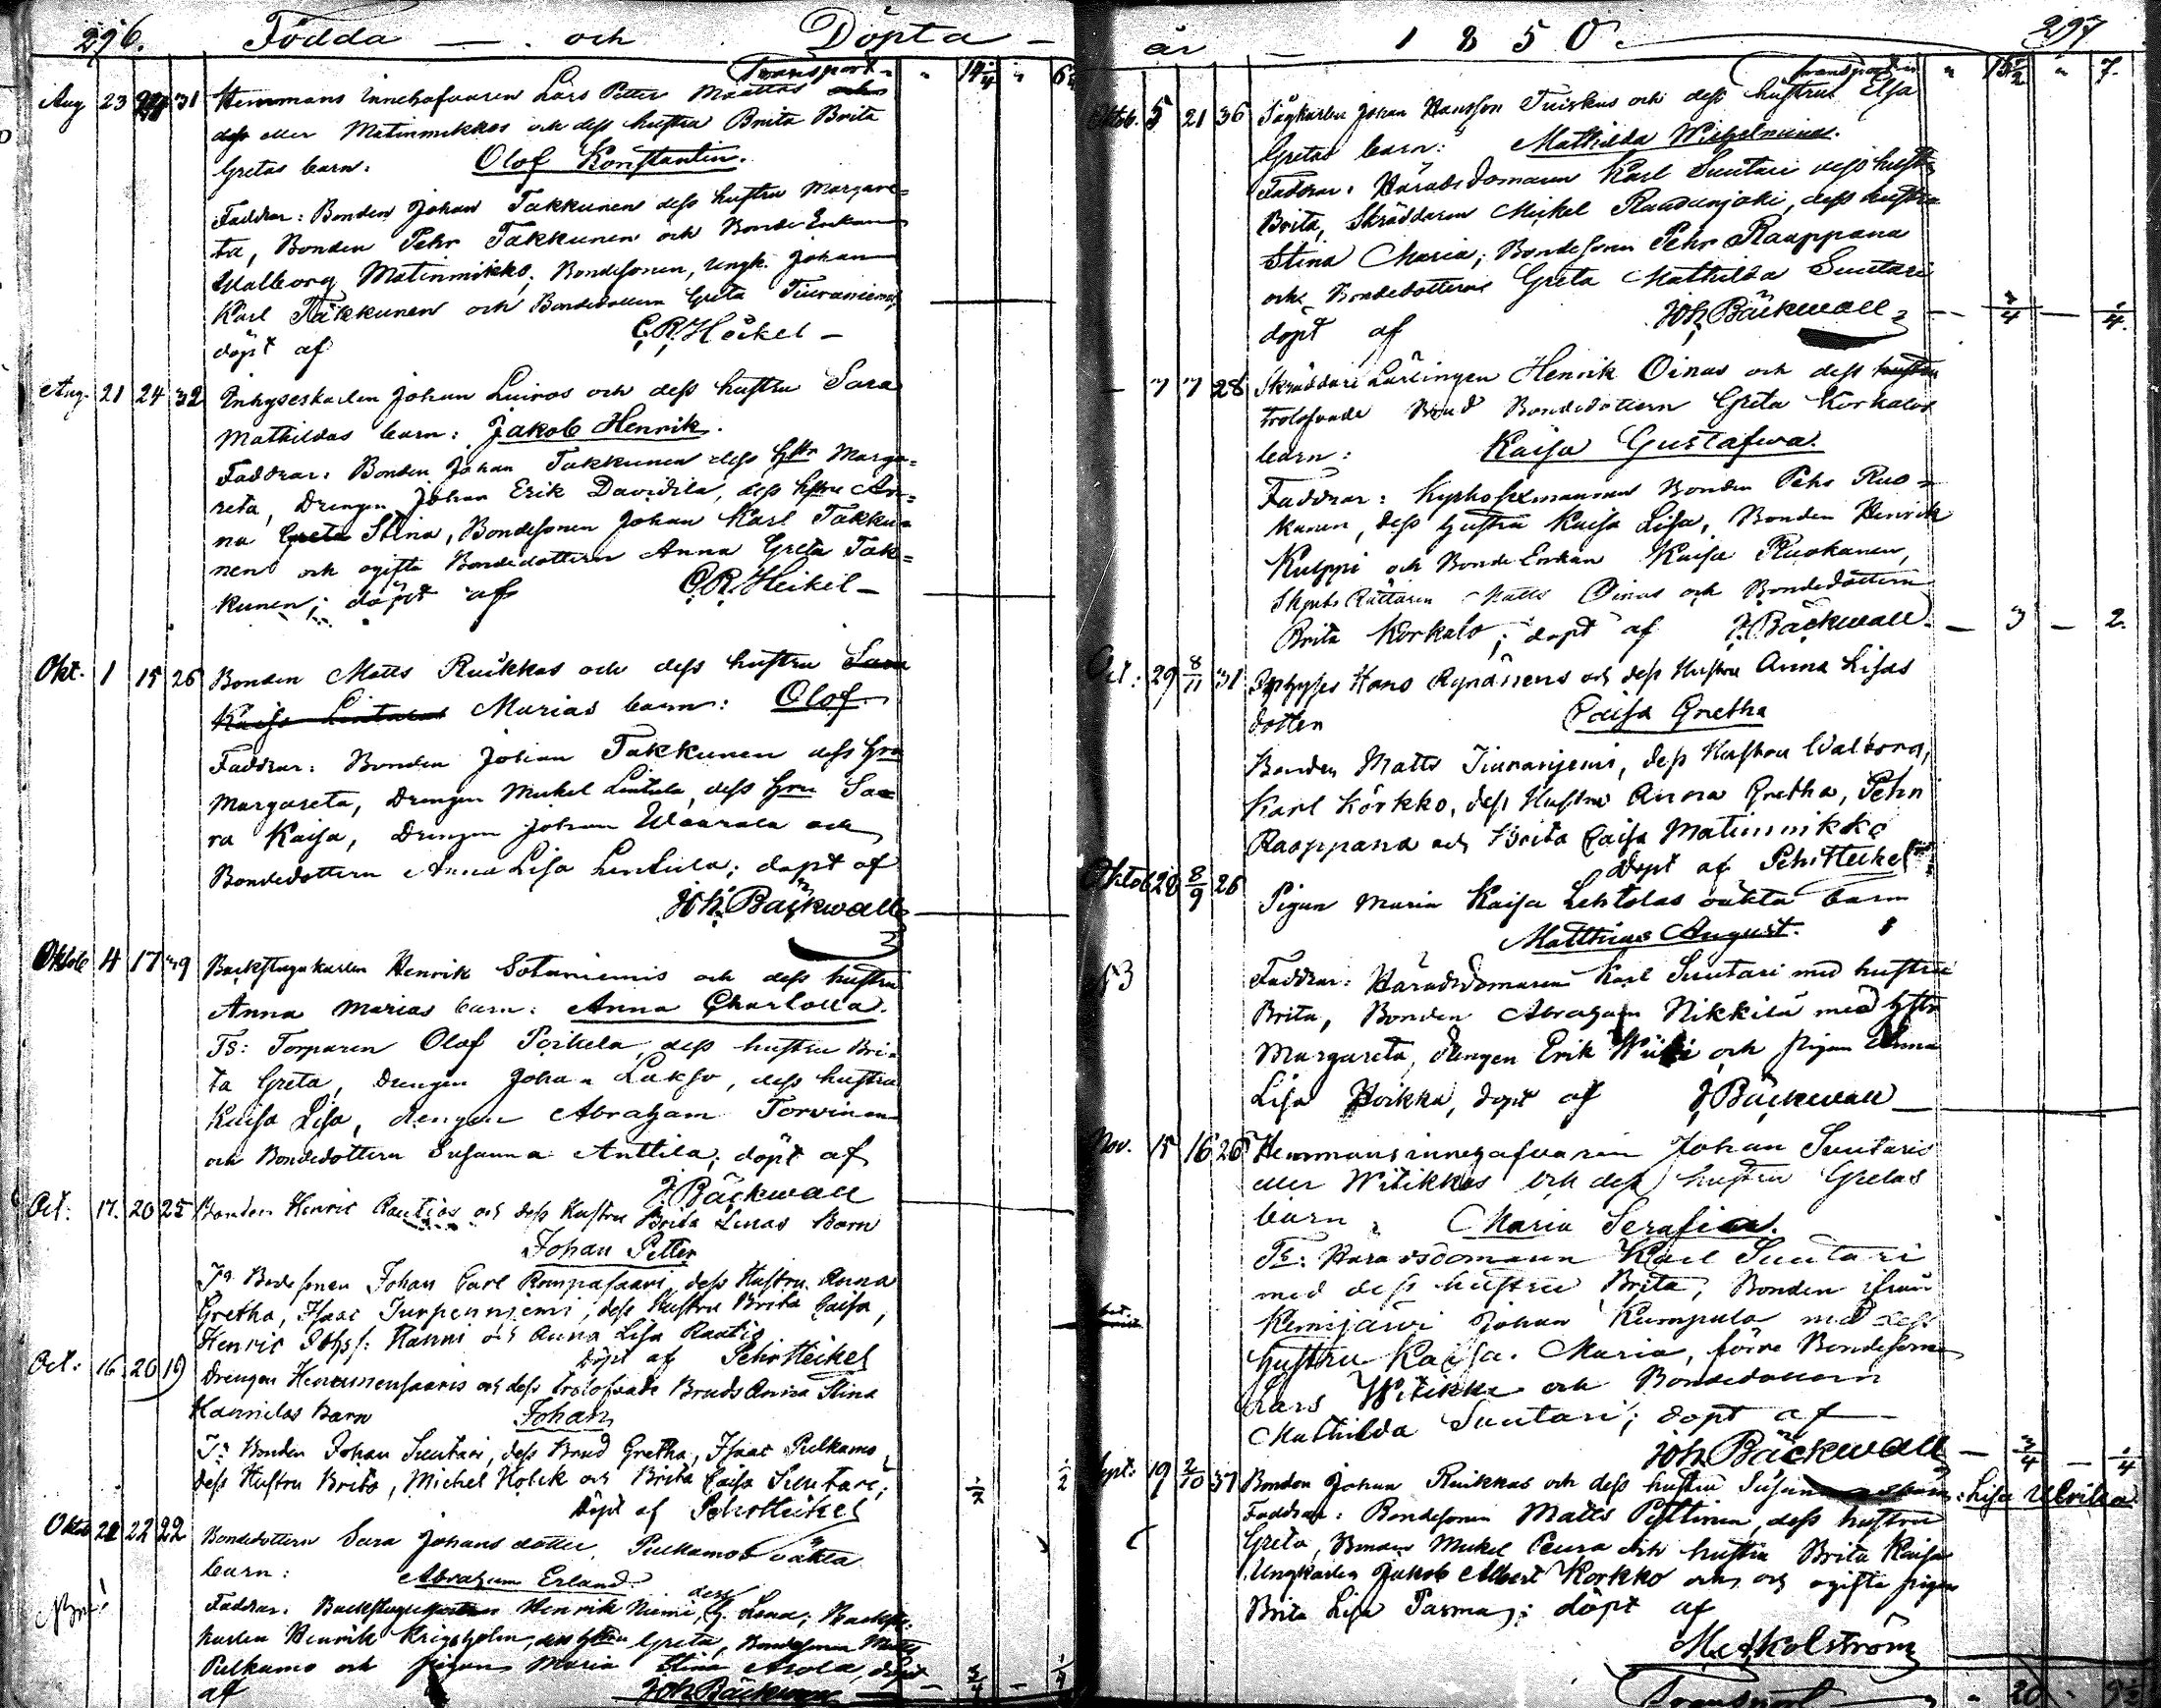 296. Födda — och Döpta —
Transport
Aug 23 31 Hemmans innehafvaren Lars Petter Maattas
eller Matinmikkos och dess hustru Brita Brita
Gretas barn: Olof Konstantin.
Faddrar: Bonden Johan Takkunen dess hustru Margare=
ta, Bonden Pehr Takkunen och Bonde Enkan
Walborg Matinmikko, Bondesonen, Ungk. Johan
Karl Takkunen och Bondedottern Greta Tiuraniemi,
döpt af C.R. Heikel —
Aug. 21 24 32 Inhyseskarlen Johan Luiros och dess hustru Sara
Mathildas barn: Jakob Henrik.
Faddrar: Bonden Johan Takkunen dess Hstr Marga=
reta, Drengen Johan Erik Davidila, dess hstru An=
na Greta Stina, Bondesonen Johan Karl Takku=
nen och ogifta Bondedottern Anna Greta Tak=
kunen; döpt af C.R. Heikel —
Okt. 1 15 26 Bonden Matts Ruikkas och dess hustru Sara
Kaisa Marias barn: Olof
Faddrar: Bonden Johan Takkunen dess Hru
Margareta, Drengen Mickel Lintula, dess Hru Sa=
ra Kaisa, Drengen Johan Waarala och
Bondedottern Anna Lisa Lintula; döpt af
Joh. Bäckwall
Oktob 4 17 39 Backstugukarlen Henrik Sotaniemis och dess hustru
Anna Marias barn: Anna Charlotta.
Fs: Torparen Olof Poikela, dess hustru Bri=
ta Greta, Drengen Johan Lakso, dess hustru
Kaisa Lisa, drengen Abraham Torvinen
och Bondedottern Susanna Anttila; döpt af
J. Bäckwall
Oct: 17. 20 25 Bonden Henric Rautios och dess Hustru Brita Linas Barn
Johan Petter
Fs Bondesonen Johan Carl Rompasaari, dess Hustru Anna
Gretha, Isaac Jurpenniemi, dess Hustru Brita Caisa,
Henric Hanni och Anna Lisa Rautio
döpt af Pehr Heikel
Oct: 16. 20 19 Drengen och dess trolofvade Bruds Anna Stina
Hannilas Barn Johan
Fs Bonden Johan Suutari, dess Brud Gretha, Isaac Pulkamo,
dess Hustru Brita, Michel Kolck och Brita Caisa Suutari;
Döpt af Pehr Heikel 1/2 1/2
Oktob 21 22 22 Bondedottern Sara Johans dotter Pulkamos oäkta
barn: Abraham Erland.
Faddrar: Henrik Niemi dess H. Lena; Backstu=
karlen Henrik Krigsholm, dess Hstru Greta, Bondesonen Matts
Pulkamo och pigan Maria Stina Arola, döpt
af Joh Bäckwall 3/4 1/4
år — 1850. 297
Transport 15 1/2 7.
Oktob. 5 21 36 Sågkarlen Johan Hansson Tuiskus och dess hustrus Elsa
Gretas barn: Mathilda Wilhelmina.
Faddrar: Häradsdomaren Karl Suutari dess hustru
Brita, Skräddaren Mickel Raudanjoki, dess hustru
Stina Maria; Bondesonen Pehr Raappana
och Bondedotteren Greta Mathilda Suutari
döpt af Joh. Bäckwall — 3/4 — 1/4.
— 7 7 28 Skräddare Lärlingen Henrik Oinas och dess hustru
trolofvade Brud Bondedottern Greta Korkalos
barn: Kaisa Gustafva.
Faddrar: Kyrkosexmannen Bonden Pehr Ruo=
kanen, dess Hustru Kaisa Lisa, Bonden Henrik
Kulppi och Bonde Enkan Kaisa Ruokanen,
Skjuts Rättaren Matts Oinas och Bondedottern
Brita Korkalo; döpt af J. Bäckwall — 3 — 2.
Oct: 29 8/11 31 Inhyses Hans Kynäsiens och dess Hustru Anna Lisas
dotter Caisa Gretha
Bonden Matts Tiuraniemi, dess Hustru Walborg,
Karl Körkkö, dess Hustru Anna Gretha, Pehr
Raappana och Brita Caisa Matinmikko
döpt af Pehr Heikel
Oktob 28 8/9 26 Pigan Maria Kaisa Lehtolas oäkta barn
Matthias August.
N3 Faddrar: Häradsdomaren Karl Suutari med hustru
Brita, Bonden Abraham Nikkilä med Hstr
Margareta, drengen Erik och pigan Anna
Lisa Hoikka, döpt af J. Bäckwall
Nov. 15 16 26 Hemmansinnehafvaren Johan Suutaris
eller Witikkas och dess hustru Gretas
barn: Maria Serafia.
Fs: Häradsdomaren Karl Suutari
med dess hustru Brita, Bonden ifrån
Kemijärvi Johan Kumpula med dess
hustru Kaisa Maria, förre Bondesonen
Lars Witikka och Bondedottern
Mathilda Suutari; döpt af
Joh Bäckwall — 3/4 — 1/4
Sept: 19 2/10 37 Bonden Johan Ruikkas och dess hustru Susanna barn: Lisa Ulrika
Faddrar: Bondesonen Matts Pettinen, dess hustru
Greta, Bonden Mickel Peura och hustru Brita Kaisa
Ungkarlen Jakob Albert Korkko och ogifta pigan
Brita Lisa Tarma; döpt af
Transport 20